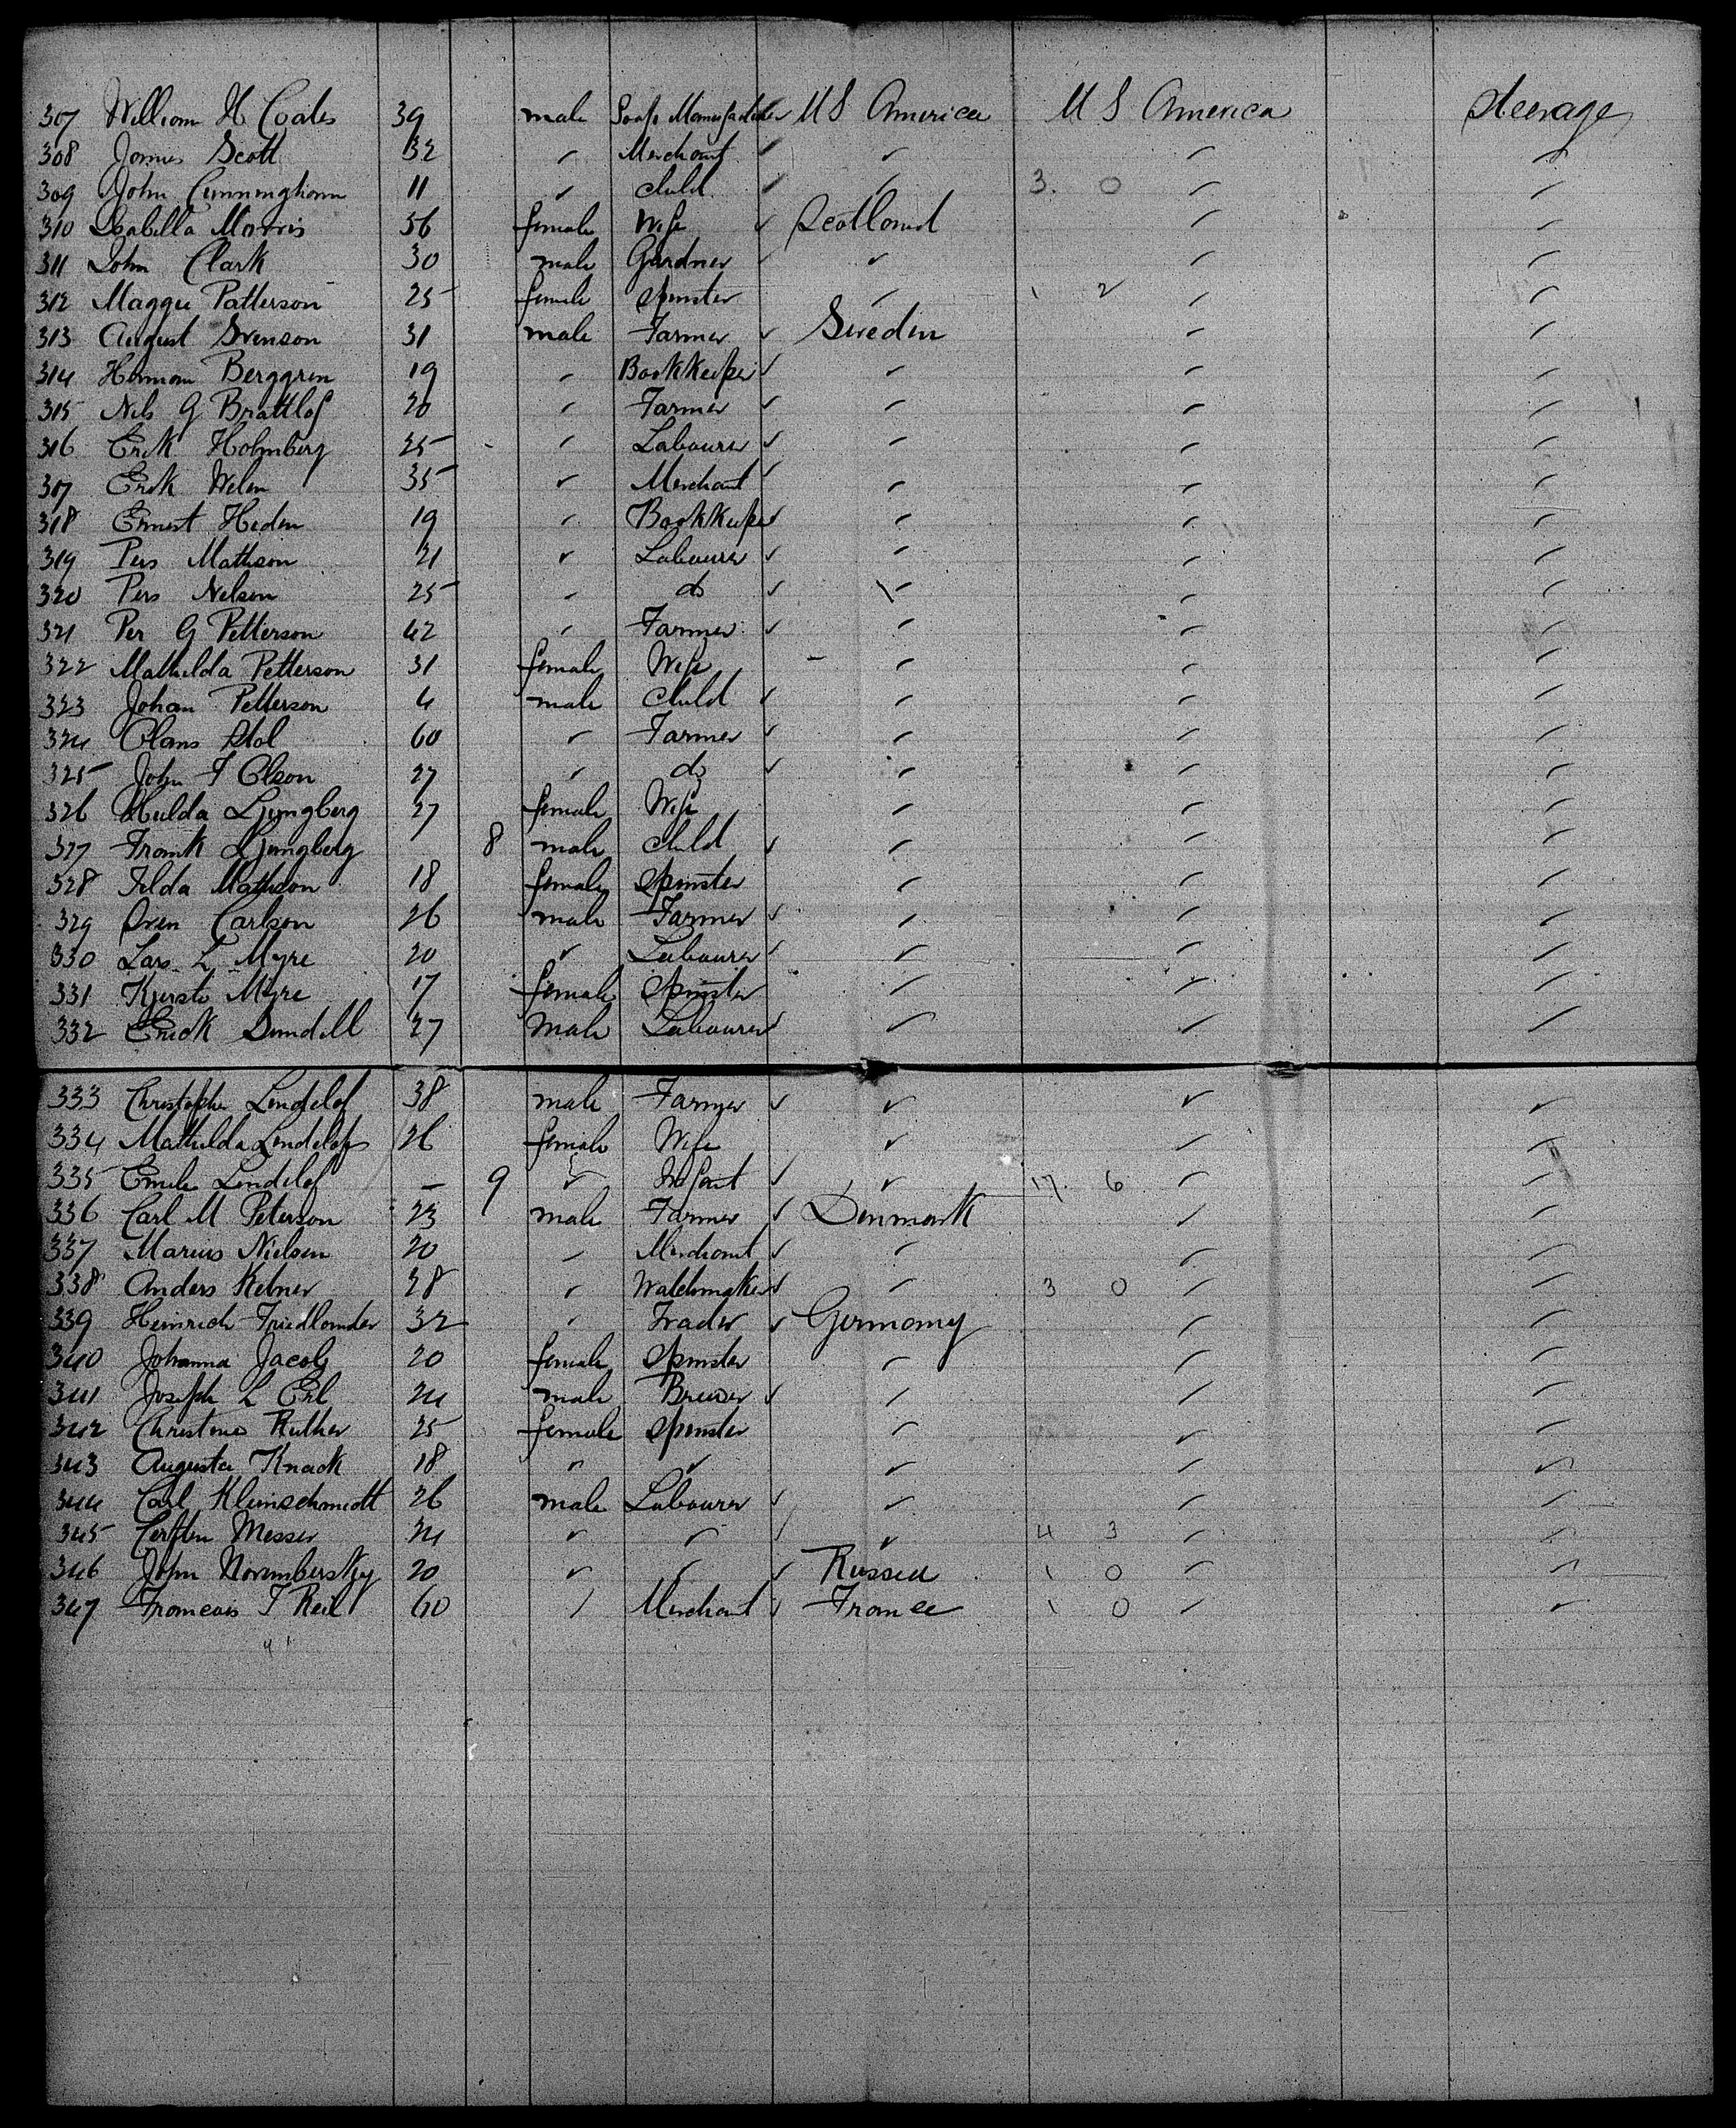 307 William H Coates 39 male Soap Manufacturer ✓ U S America U S America Steerage
308 James Scott 32 " Merchant ✓ " " "
309 John Cunningham 11 " child ✓ " 3. 0 " "
310 Isabella Morris 56 female Wife ✓ Scotland " "
311 John Clark 30 male Gardner ✓ " " "
312 Maggie Patterson 25 female Spinster " 1 2 " "
313 August Svenson 31 male Farmer ✓ Sweden " "
314 Herman Berggren 19 " Bookkeeper ✓ " " "
315 Nils G Brattlof 20 " Farmer ✓ " " "
316 Erik Holmberg 25 " Labourer ✓ " " "
317 Erik Welin 35 " Merchant ✓ " " "
318 Ernest Heden 19 " Bookkeeper ✓ " " "
319 Pers Mathson 21 " Labourer ✓ " " "
320 Pers Nelson 25 " do ✓ " " "
321 Per G Petterson 42 " Farmer ✓ " " "
322 Mathilda Petterson 31 female Wife " " "
323 Johan Petterson 4 male Child ✓ " " "
324 Stol 60 " Farmer ✓ " " "
325 John F Olson 27 " do ✓ " " "
326 Hulda Ljungberg 27 female Wife " " "
327 Frank Ljungberg 8 male Child ✓ " " "
328 Tilda Mathson 18 female Spinster " " "
329 Sven Carlson 26 male Farmer ✓ " " "
330 Lars L Myre 20 " Labourer ✓ " " "
331 Kjersti Myre 17 female Spinster " " "
332 Erick Sundell 27 Male Labourer ✓ " " "
333 Christopher Lindelof 38 male Farmer ✓ " " "
334 Mathilda Lindelof 26 female Wife " " "
335 Lindelof – 9 " Infant ✓ " 17. 6 " "
336 Carl M Peterson 23 male Farmer ✓ Denmark " "
337 Marius Nielsen 20 " Merchant ✓ " " "
338 Anders Kebner 28 " Watchmaker ✓ " 3 0 " "
339 Heinrich Friedlander 32 " Trader ✓ Germany " "
340 Johanna Jacob 20 female Spinster " " "
341 Joseph L Erl 24 male Brewer ✓ " " "
342 Christine Ruther 25 female Spinster " " "
343 Augusta Knack 18 " " " " "
344 Carl Kleinschmidt 26 male Labourer ✓ " " "
345 Messer 24 " " ✓ " 4 3 " "
346 John 20 " " ✓ Russia 1 0 " "
347 Francois T Reil 60 " Merchant ✓ France 1 0 " "